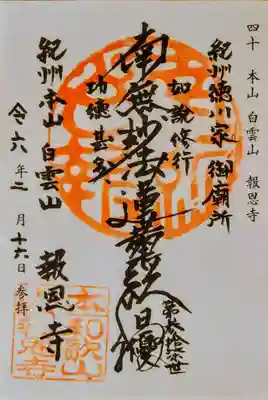 四十 本山 白雲山 報恩寺
紀州徳川家御廟所
如説修行
南無妙法蓮華経
功徳甚多
紀州本山 白雲山 報恩寺
令六年二月十六日参拝